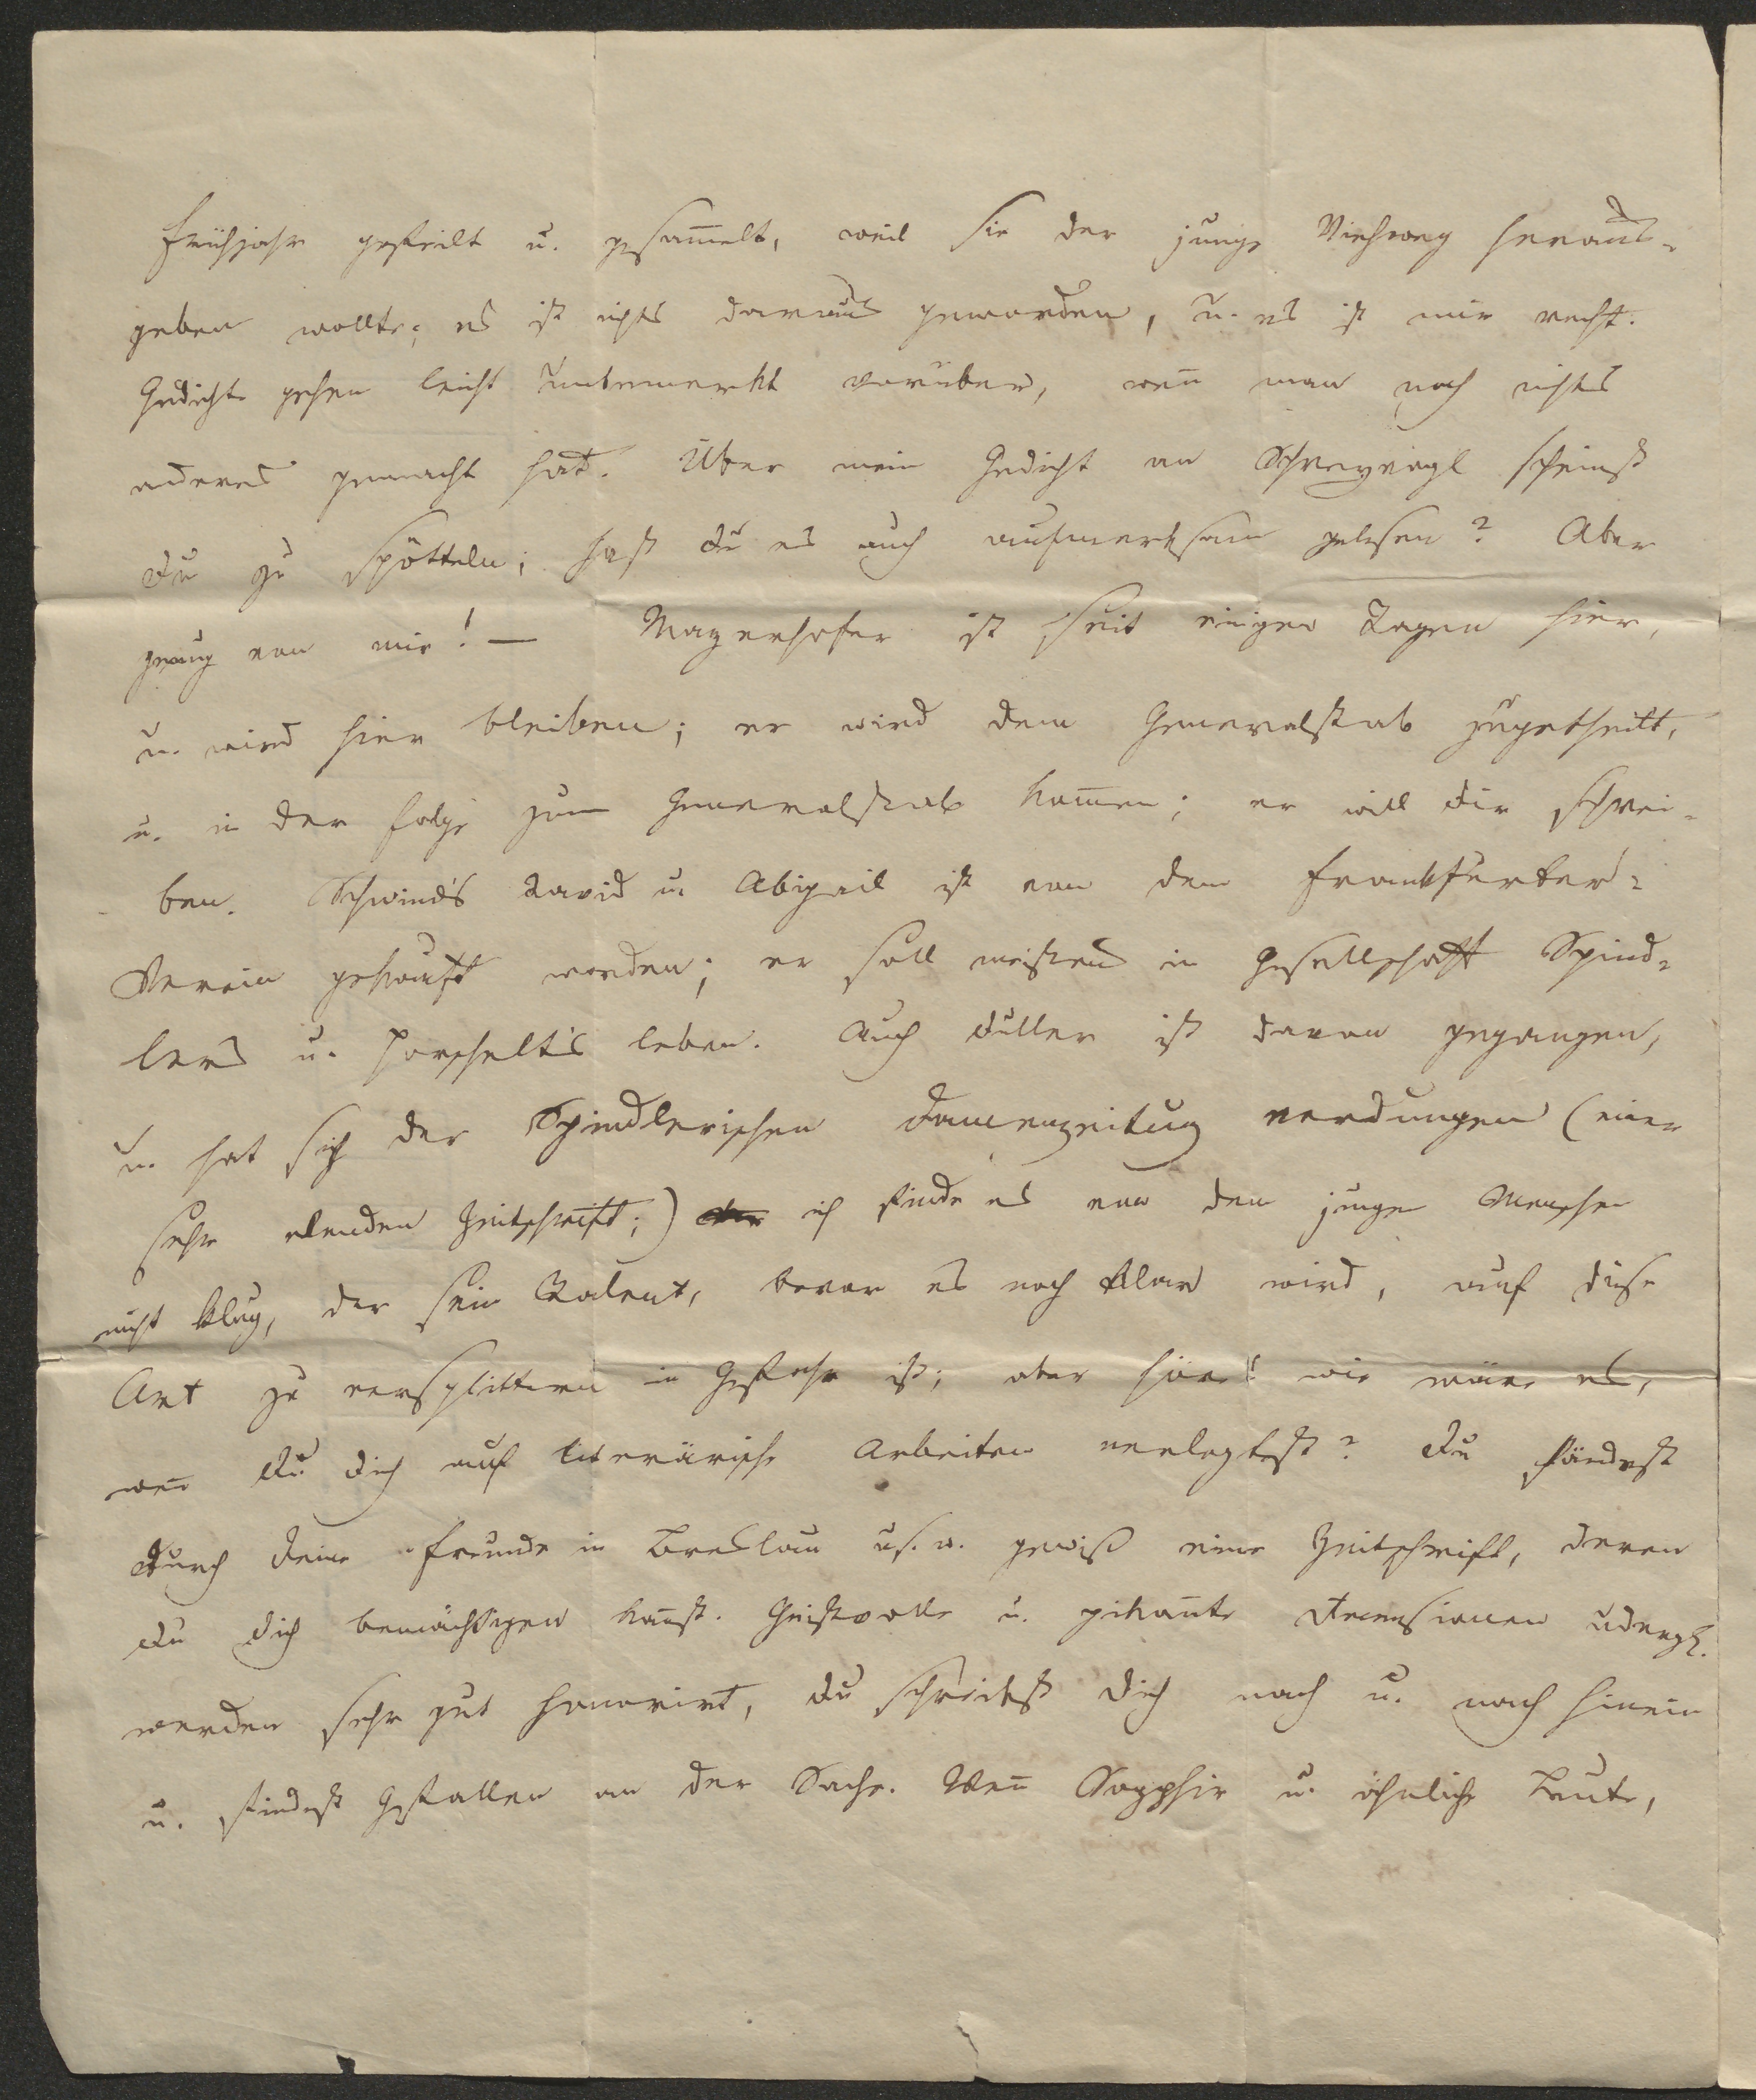 Frühjahr gefeilt u. gesam̄elt, weil sie der junge Viehweg heraus-
geben wollte; es ist nichts daraus geworden, u. es ist mir recht.
Gedichte gehen leicht unbemerkt vorüber, wen̄ man noch nichts
anderes gemacht hat. Über mein Gedicht an Schreyvogl scheinst
Du zu spötteln; hast Du es auch aufmerksam gelesen? Aber
genug von mir! — Mayerhofer ist seit einigen Tagen hier,
u. wird hier bleiben; er wird dem Generalstab zugetheilt,
u. in der Folge zum Generalstab kom̄en; er will Dir schrei-
ben. Schwind's David u. Abigail ist von dem Frankfurter-
Verein gekauft worden; er soll meistens in Gesellschaft Spind-
lers u. Forchelt's leben. Auch Duller ist davon gegangen,
u. hat sich der Spindlerischen Damenzeitung verdungen (einer
sehr elenden Zeitschrift;) ich finde es von dem jungen Menschen
nicht klug, der sein Talent, bevor es noch klar wird, auf diese
Art zu zersplittern in Gefahr ist; aber höre! wie wäre es,
wen̄ Du Dich auf literärische Arbeiten verlegtest? Du fändest
durch Deine Freunde in Breslau u.s.w. gewiß eine Zeitschrift, deren
Du Dich bemächtigen kan̄st. Geistvolle u. pikante Recensionen u dergl.
werden sehr gut honorirt, Du schreibst Dich nach u. nach hinein
u. findest Gefallen an der Sache. Wen̄ Sapphir u. ähnliche Leute,